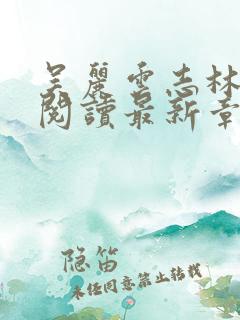 吴麗雲志林
閱讀最新章
隐笛
未经同意禁止转载